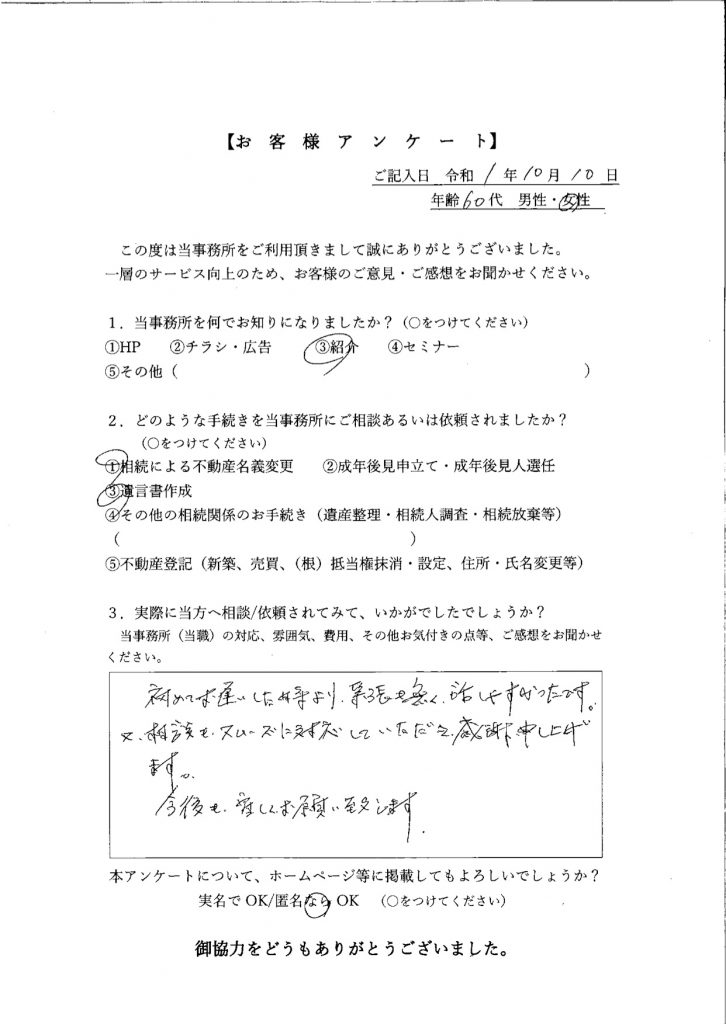 【お客様アンケート】
ご記入日 令和 1 年 10 月 10 日
年齢 60 代 男性・女性
この度は当事務所をご利用頂きまして誠にありがとうございました。
一層のサービス向上のため、お客様のご意見・ご感想をお聞かせください。
1．当事務所を何でお知りになりましたか？（○をつけてください）
①HP ②チラシ・広告 ③紹介 ④セミナー
⑤その他（ ）
2．どのような手続きを当事務所にご相談あるいは依頼されましたか？
（○をつけてください）
①相続による不動産名義変更 ②成年後見申立て・成年後見人選任
③遺言書作成
④その他の相続関係のお手続き（遺産整理・相続人調査・相続放棄等）
（ ）
⑤不動産登記（新築、売買、（根）抵当権抹消・設定、住所・氏名変更等）
3．実際に当方へ相談/依頼されてみて、いかがでしたでしょうか？
当事務所（当職）の対応、雰囲気、費用、その他お気付きの点等、ご感想をお聞かせ
ください。
初めてお逢いした時より、緊張も無く、話しやすかったです。
又、相談も、スムーズに対応していただき、感謝申し上げ
ます。
今後も、宜しくお願い致します。
本アンケートについて、ホームページ等に掲載してもよろしいでしょうか？
実名でOK/匿名ならOK （○をつけてください）
御協力をどうもありがとうございました。